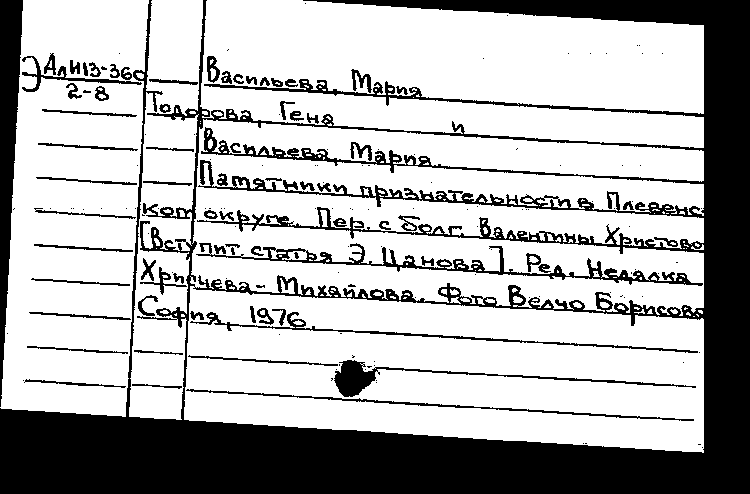 Э АлН13-360
2-8
Васильева, Мария
Тодорова, Гена и
Васильева, Мария.
Памятники признательности в Плевенс-
ком округе. Пер. с болг. Валентины Христово
[Вступит. статья Э. Цанова]. Ред. Недялка
Хрисчева-Михайлова. Фото Велчо Борисова
София, 1976.